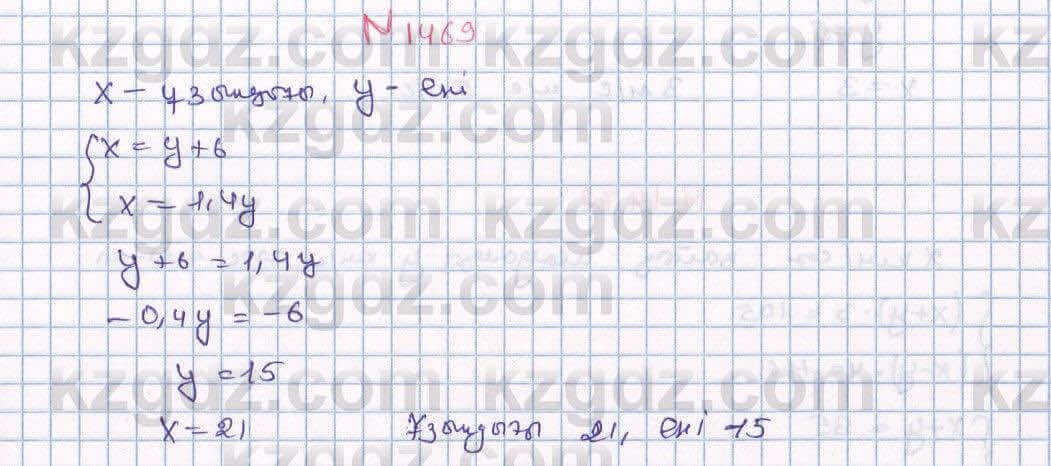 N 1469
kzgdz.com kzgdz.com kz
x – ұзындығы, y – ені
kzgdz.com
{ x = y + 6
x = 1,4y
kzgdz.com kzgdz.com kz
y + 6 = 1,4y
kzgdz.com
- 0,4y = -6
y = 15
kzgdz.com kzgdz.com kz
x = 21 Ұзындығы 21, ені - 15